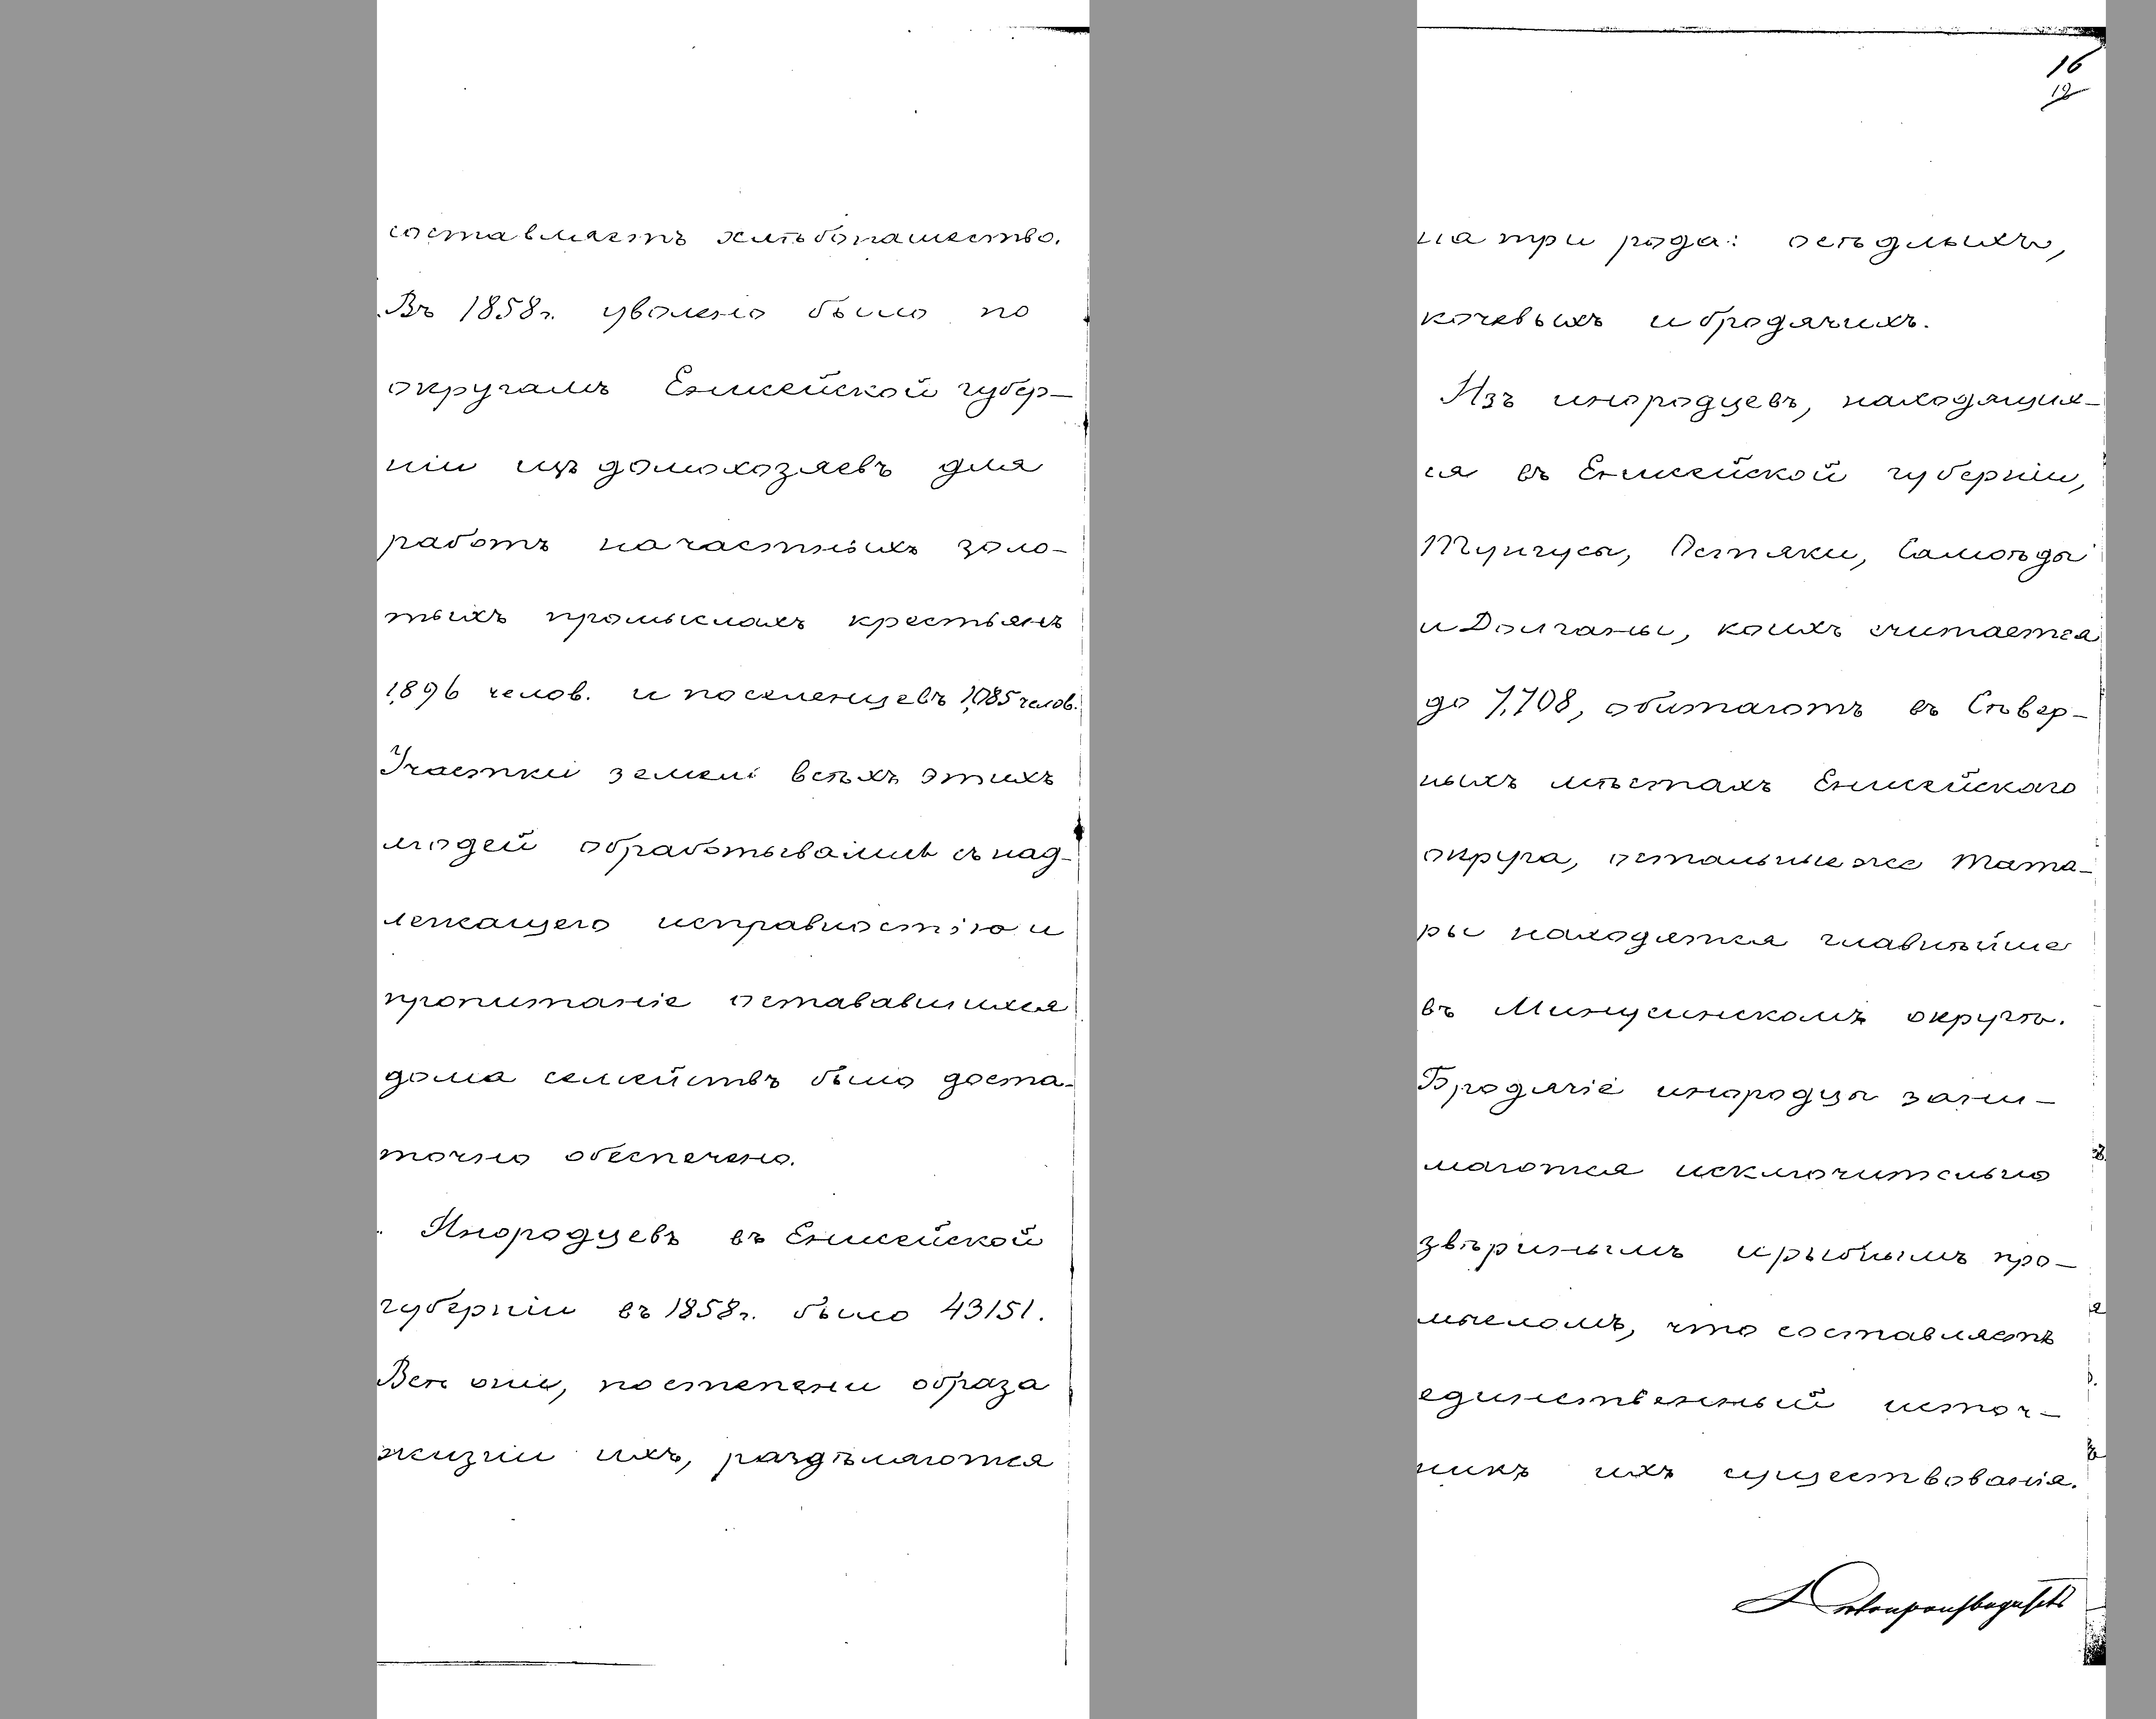 составляетъ хлѣбопашество.
Въ 1858 г. уволено было по
округамъ Енисейской губер-
ніи изъ домохозяевъ для
работъ на частныхъ золо-
тыхъ промыслахъ крестьянъ
1,896 челов. и поселенцевъ 1,085 челов.
Участки земли всѣхъ этихъ
людей обработывались съ над-
лежащего исправностію и
пропитаніе остававшихся
дома семействъ было доста-
точно обеспечено.
Инородцевъ въ Енисейской
губерніи въ 1858 г. было 43151.
Всѣ они, по степени образа
жизни ихъ, раздѣляются
16
12
на три рода: осѣдлыхъ,
кочевыхъ и бродячихъ.
Изъ инородцевъ, находящих-
ся въ Енисейской губерніи,
Тунгусы, Остяки, Самоѣды
и Долганы, коихъ считается
до 7,708, обитаютъ въ Сѣвер-
ныхъ мѣстахъ Енисейскаго
округа, остальные же Тата-
ры находятся главнѣйше
въ Минусинскомъ округѣ.
Бродячіе инородцы зани-
маются исключительно
звѣринымъ и рыбнымъ про-
мысломъ, что составляетъ
единственный источ-
никъ ихъ существованія.